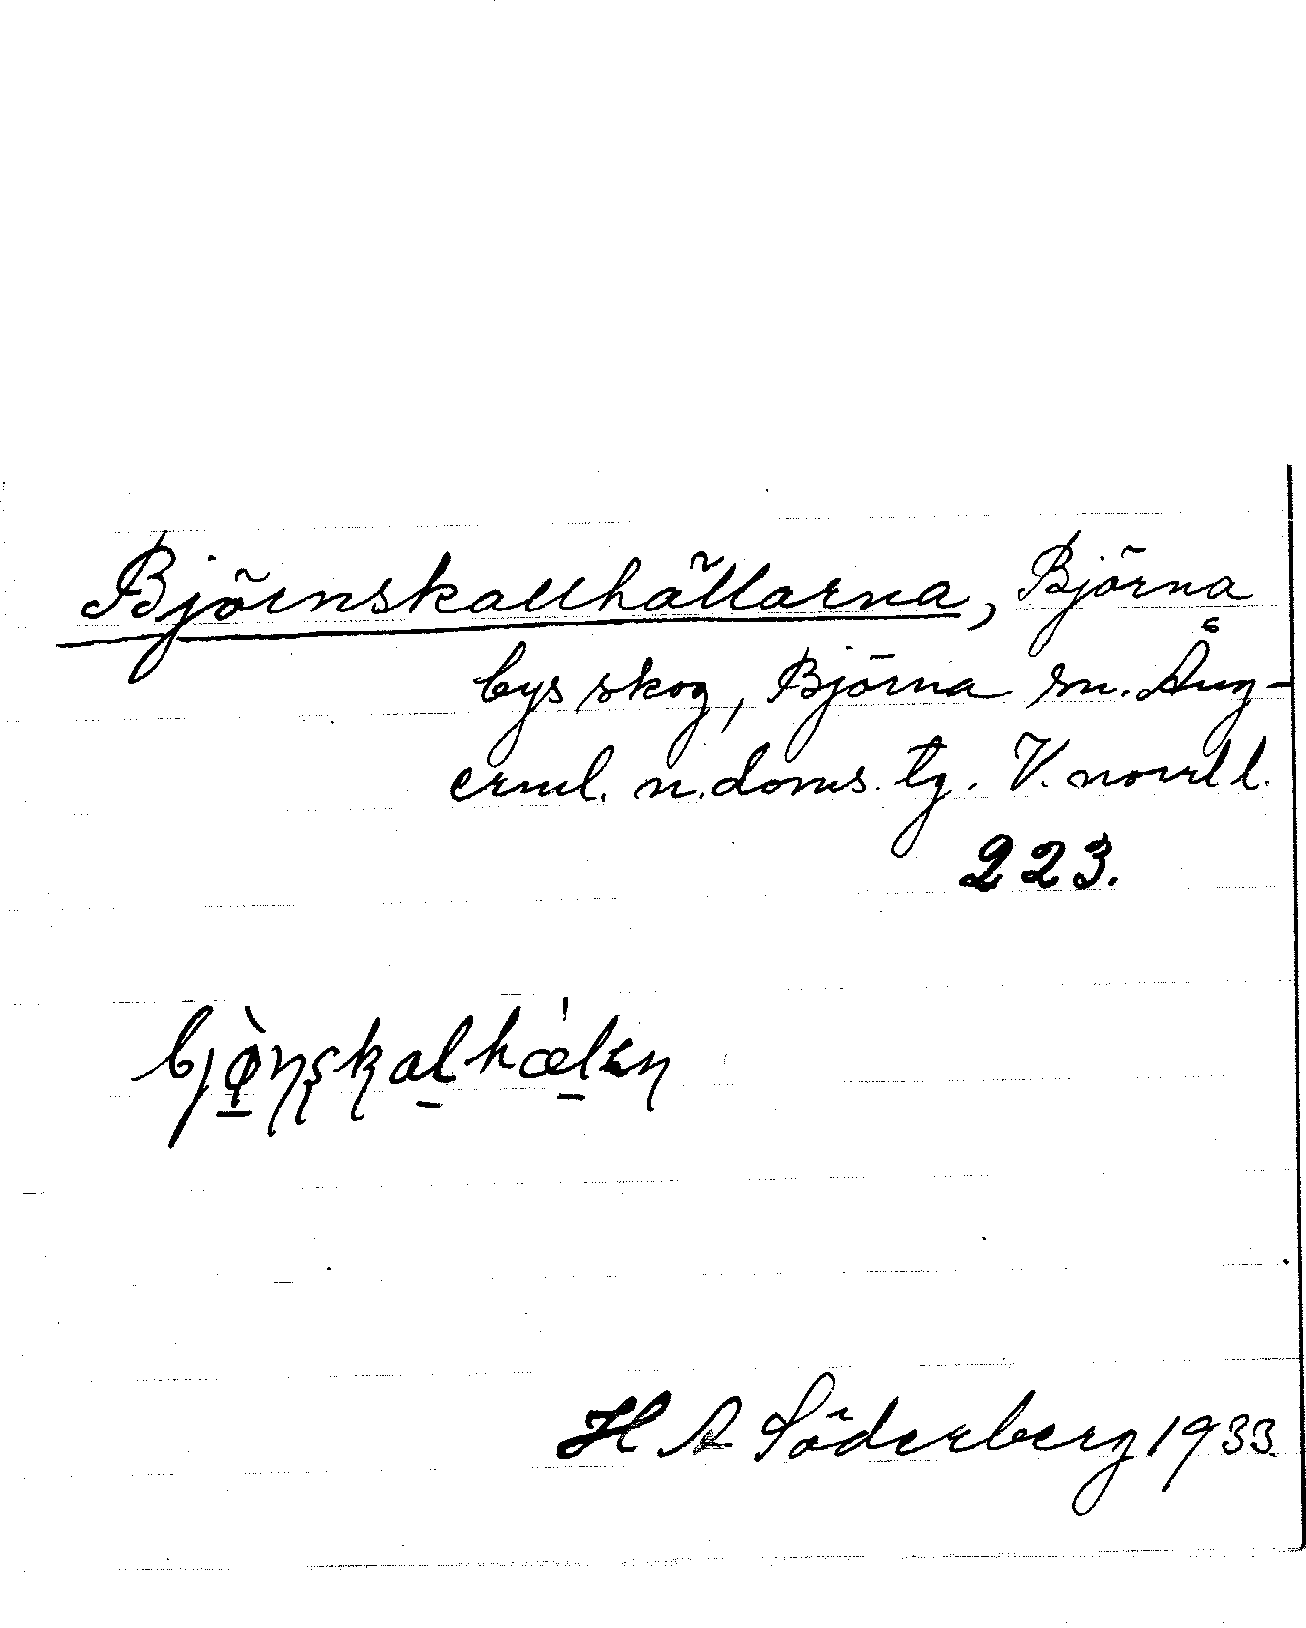 Björnskallhällarna, Björna
bys skog, Björna sn. Ång-
erml. n. doms. tg. V. norrl l.
223.
H A Söderberg 1933